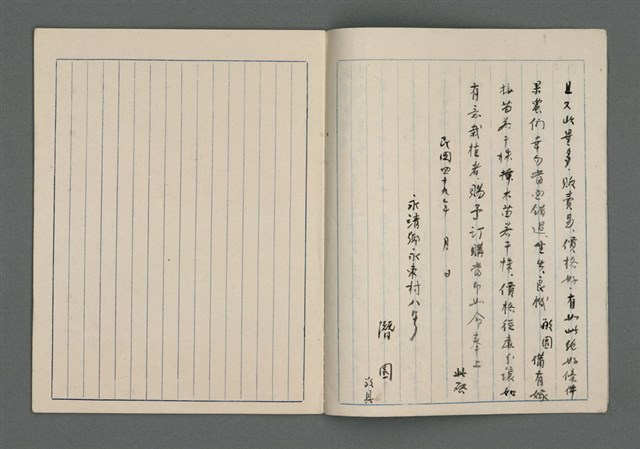 且又此量多，販賣易，價格好，有如此絕好條件
果農們幸勿當面錯過，坐失良機，敝園備有嫁
接苗若干株，揷木苗若干株，價格從廉分讓如
有意栽植者，賜予訂購當即如命奉上
此啓
民國四十九年 月 日
永靖鄉永東村八号
潛園
敬具